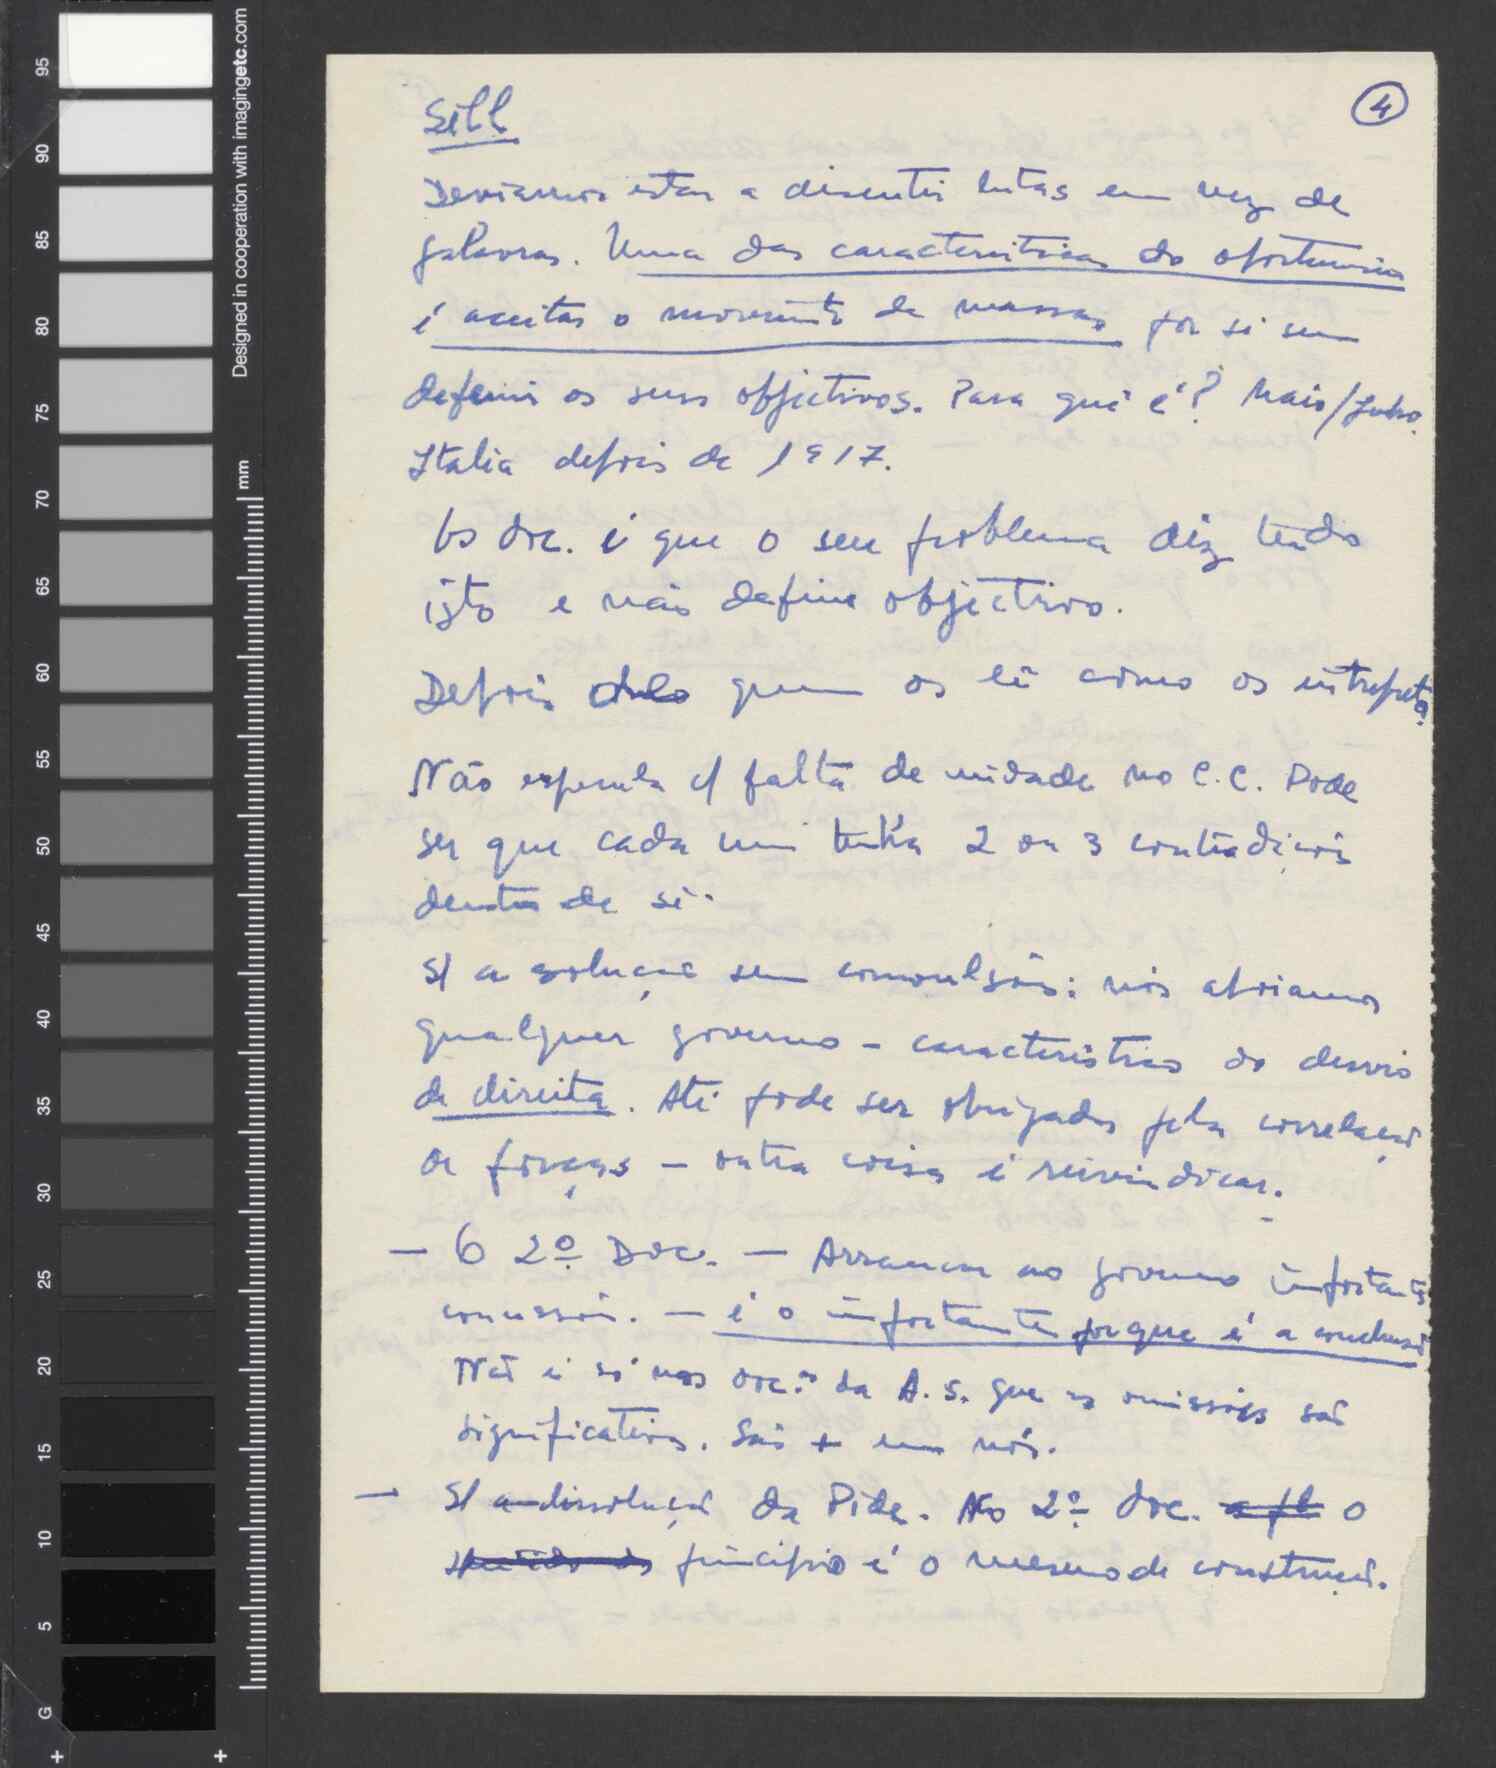 4
Devíamos estar a discutir lutas em vez de
palavras. Uma das características do oportunismo
é aceitar o movimento de massas por si sem
definir os seus objectivos. Para quê é? Maio/Junho.
Italia depois de 1917.
Os doc. é que o seu problema diz tudo
isto e não define objectivo.
Depois quem os lê como os interpreta?
Não especula c/ falta de unidade no C.C. Pode
ser que cada um tenha 2 ou 3 contradições
dentro de si.
S/ a solução sem convulsões: nós
qualquer governo – características do desvio
de direita. Até pode ser obrigados pela correlação
de forças – outra coisa é reivindicar.
— O 2º Doc. — Arrancar ao governo importantes
concessões. — é o importante porque é a conclusão
Não é só nos doc.os da A.S. que as omissões são
significativas. São + em nós.
— S/ a dissolução da Pide. No 2º doc. o
princípio é o mesmo de construção.
95
90
85
80
75
70
65
60
55
50
45
40
35
30
25
20
15
10
5
G
mm
Designed in cooperation with imagingetc.com